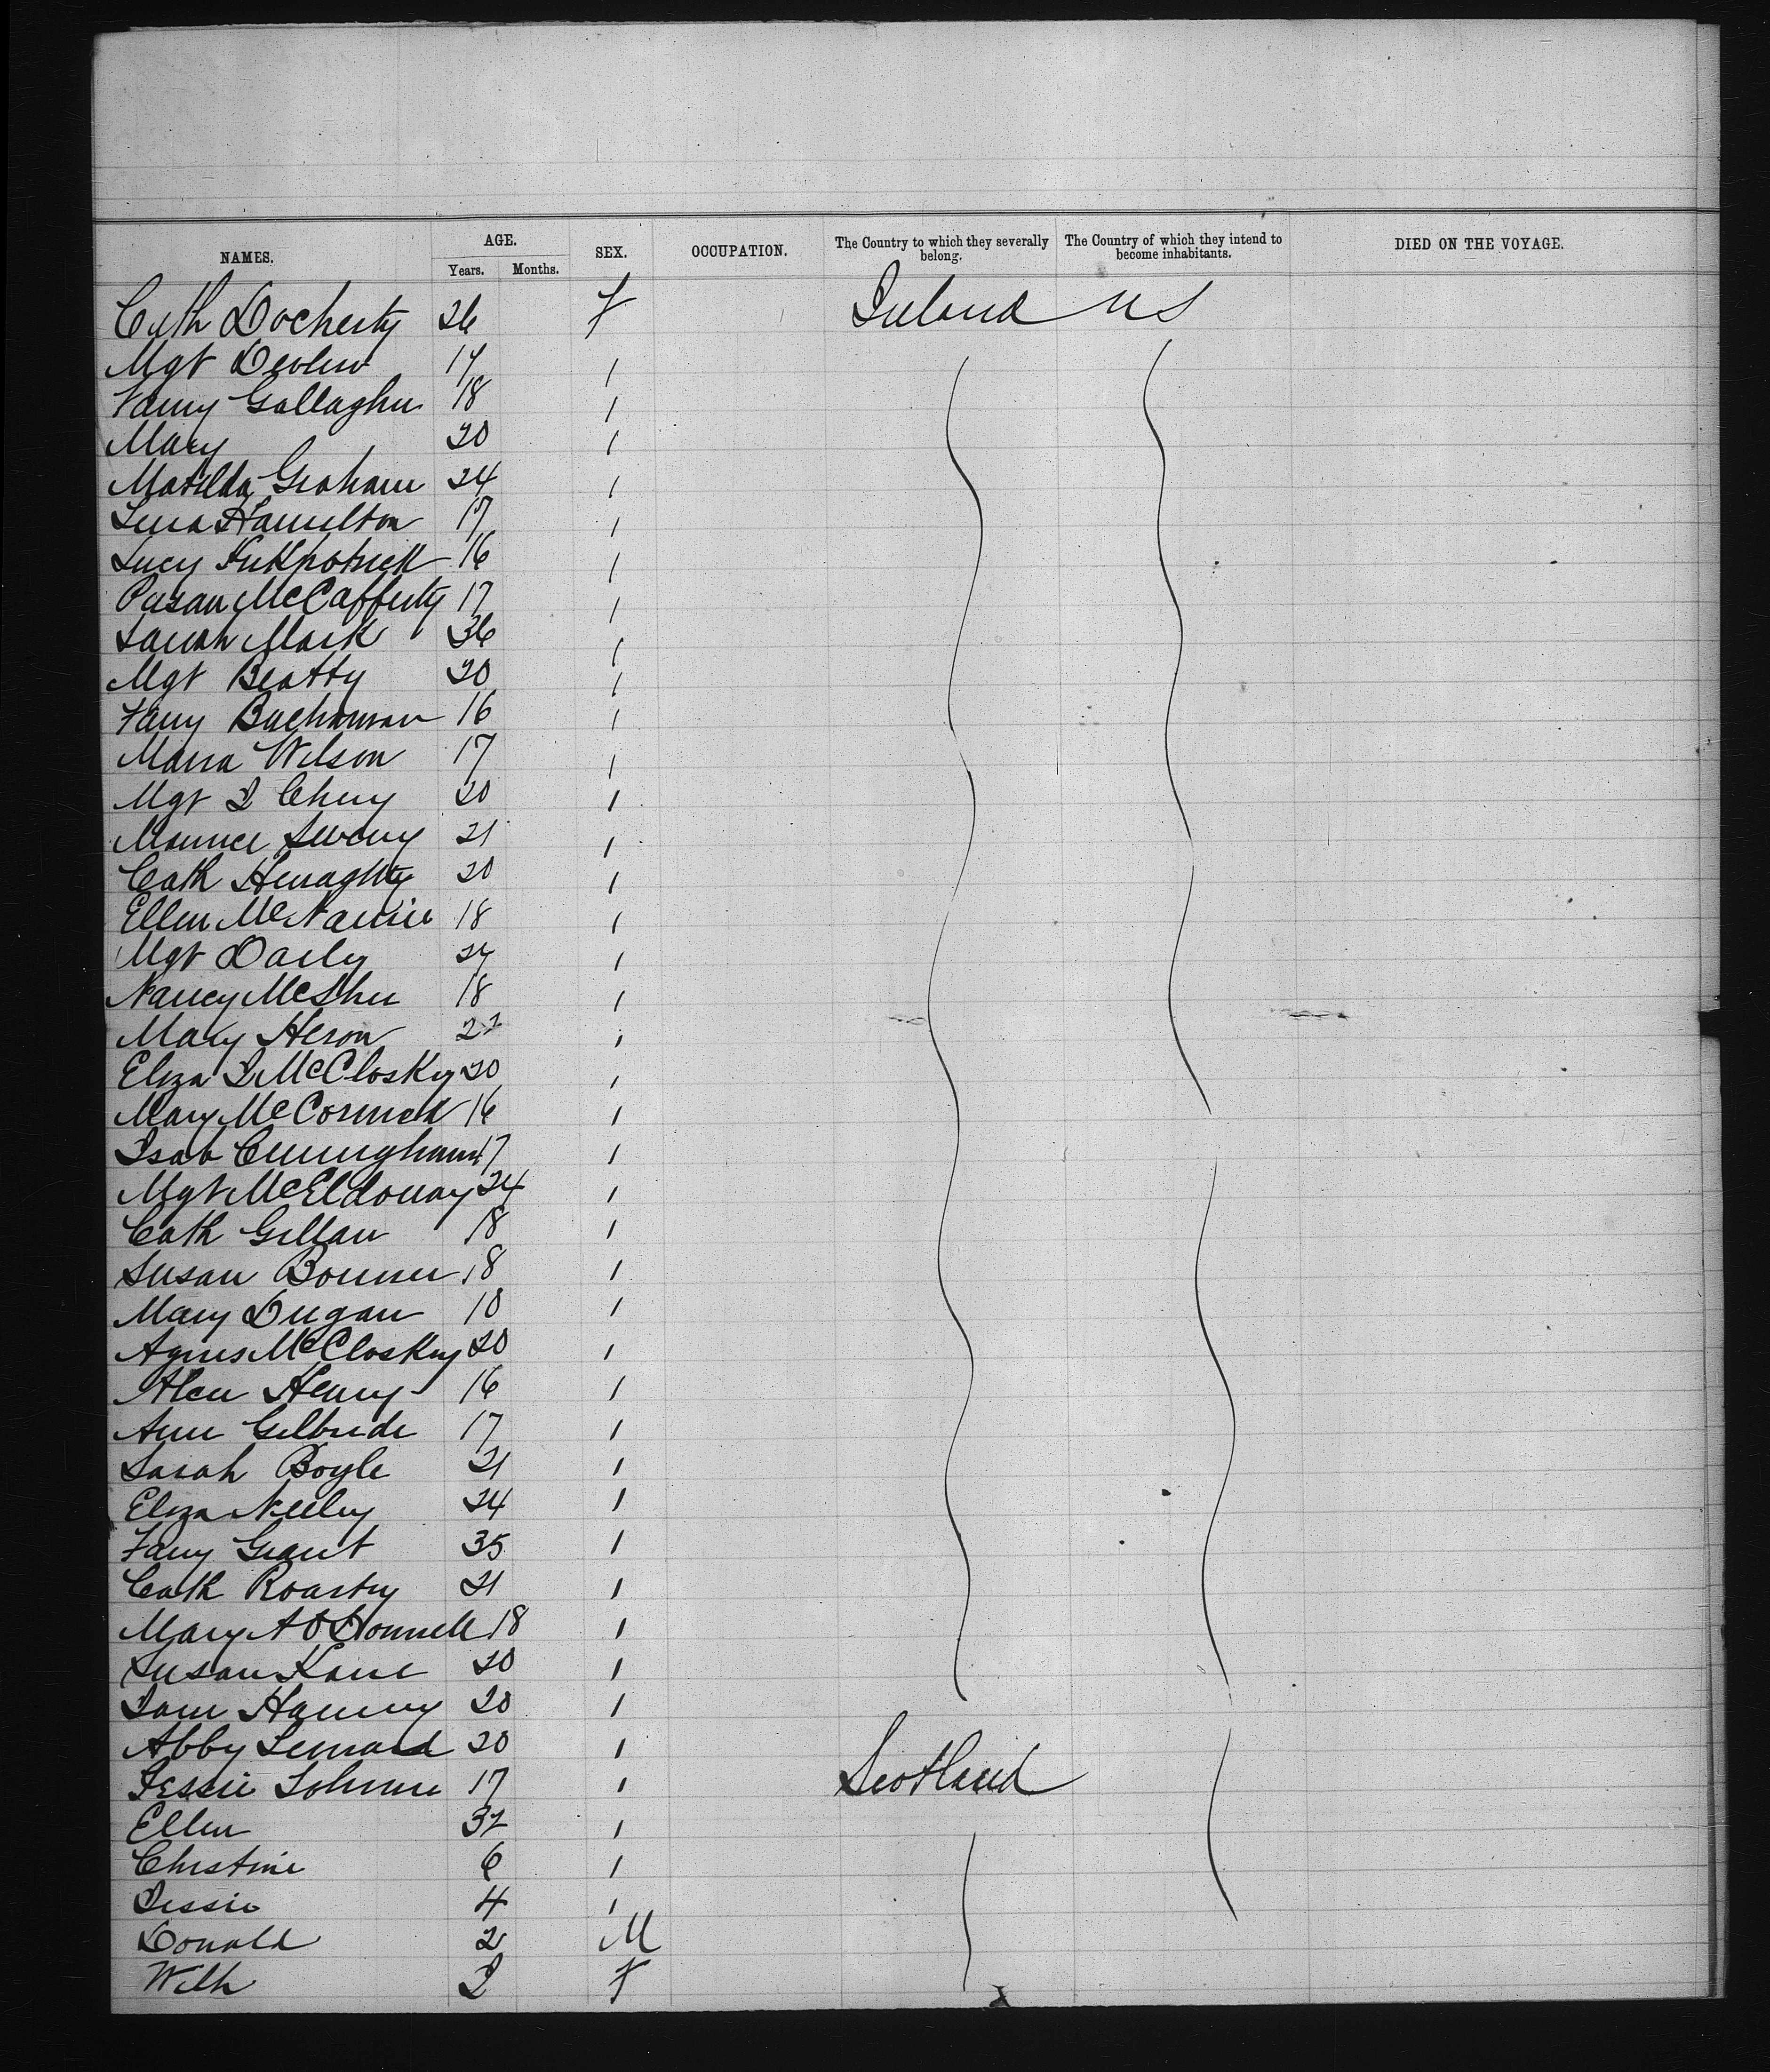 NAMES. AGE. SEX. OCCUPATION. The Country to which they severally belong. The Country of which they intend to become inhabitants. DIED ON THE VOYAGE.
Years. Months.
Cath Docherty 26 F Ireland US
Mgt Devlin 17 /
Fanny Gallagher 18 /
Mary 20 /
Matilda Graham 24 /
Lena Hamilton 17 /
Lucy Kirkpatrick 16 /
McCafferty 17 /
Sarah Mark 36 /
Mgt Beatty 20 /
Fany Buchanan 16 /
Maria Wilson 17 /
Mgt J Chery 20 /
Sweeny 21 /
Cath Heraghty 20 /
Ellen McNamie 18 /
Mgt Daily 27 /
Nancy McShee 18 /
Mary Heron 22 /
Eliza J McClosky 20 /
Mary McCormick 16 /
Isab Cuningham 17 /
Mgt McEldonay 24 /
Cath Gillan 18 /
Susan Bonner 18 /
Mary Dugan 18 /
Agnes McClosky 20 /
Henry 16 /
Ann Gilbride 17 /
Sarah Boyle 21 /
Eliza Neeley 24 /
Fany Grant 35 /
Cath Roarty 21 /
Mary A O'Donnell 18 /
Susan Kane 20 /
Jane 20 /
Abby Lennard 20 /
Jessie 17 / Scotland
Ellen 32 /
Christine 6 /
Jessie 4 /
Donald 2 M
F